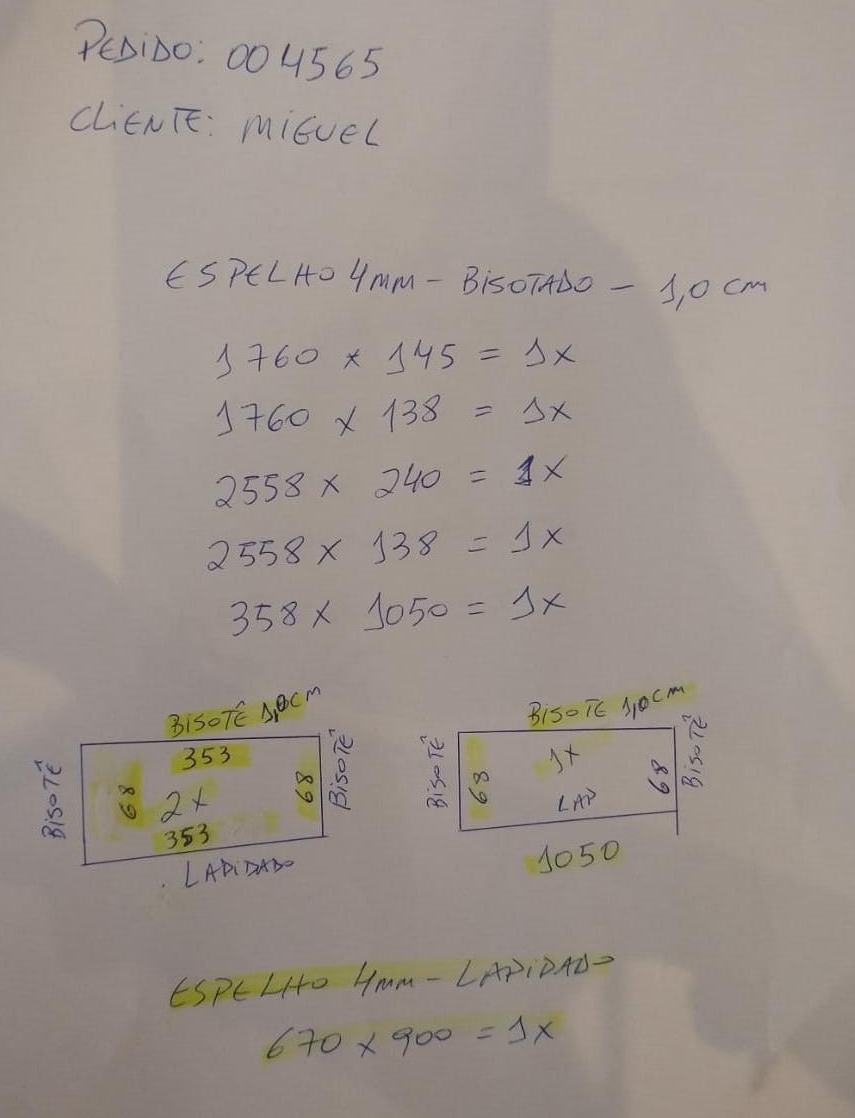 PEDIDO: 004565
CLIENTE: MIGUEL
ESPELHO 4MM - BISOTADO - 1,0 cm
1760 x 145 = 1x
1760 x 138 = 1x
2558 x 240 = 1x
2558 x 138 = 1x
358 x 1050 = 1x
BISOTÊ 1,0CM
BISOTÊ
353
68
2x
68
BISOTÊ
353
LAPIDADO
BISOTE 1,0cm
BISOTÊ
68
1x
LAP
68
BISOTÊ
1050
ESPELHO 4MM - LAPIDADO
670 x 900 = 1x